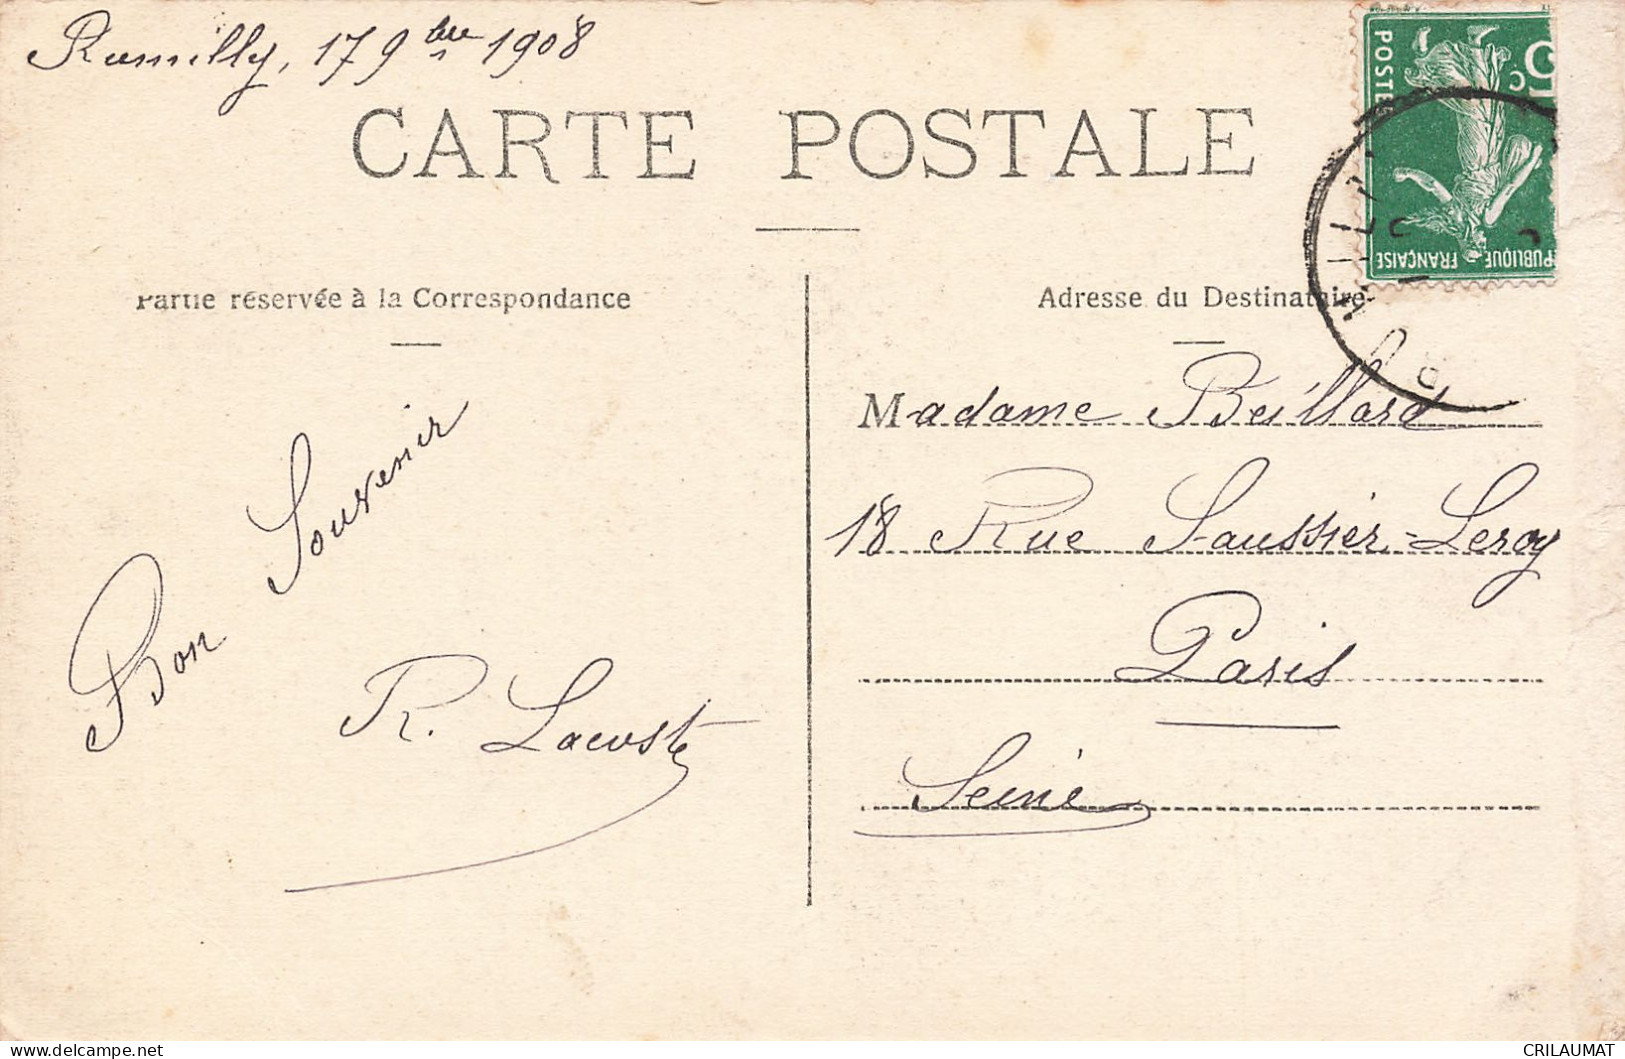 Rumilly, 17 9bre 1908
CARTE POSTALE
Partie réservée à la Correspondance
Bon Souvenir
R. Lacoste
Adresse du Destinataire
Madame Beillard
18 Rue Saussier-Leroy
Paris
Seine
POSTES
5c
RÉPUBLIQUE FRANÇAISE
CRILAUMAT